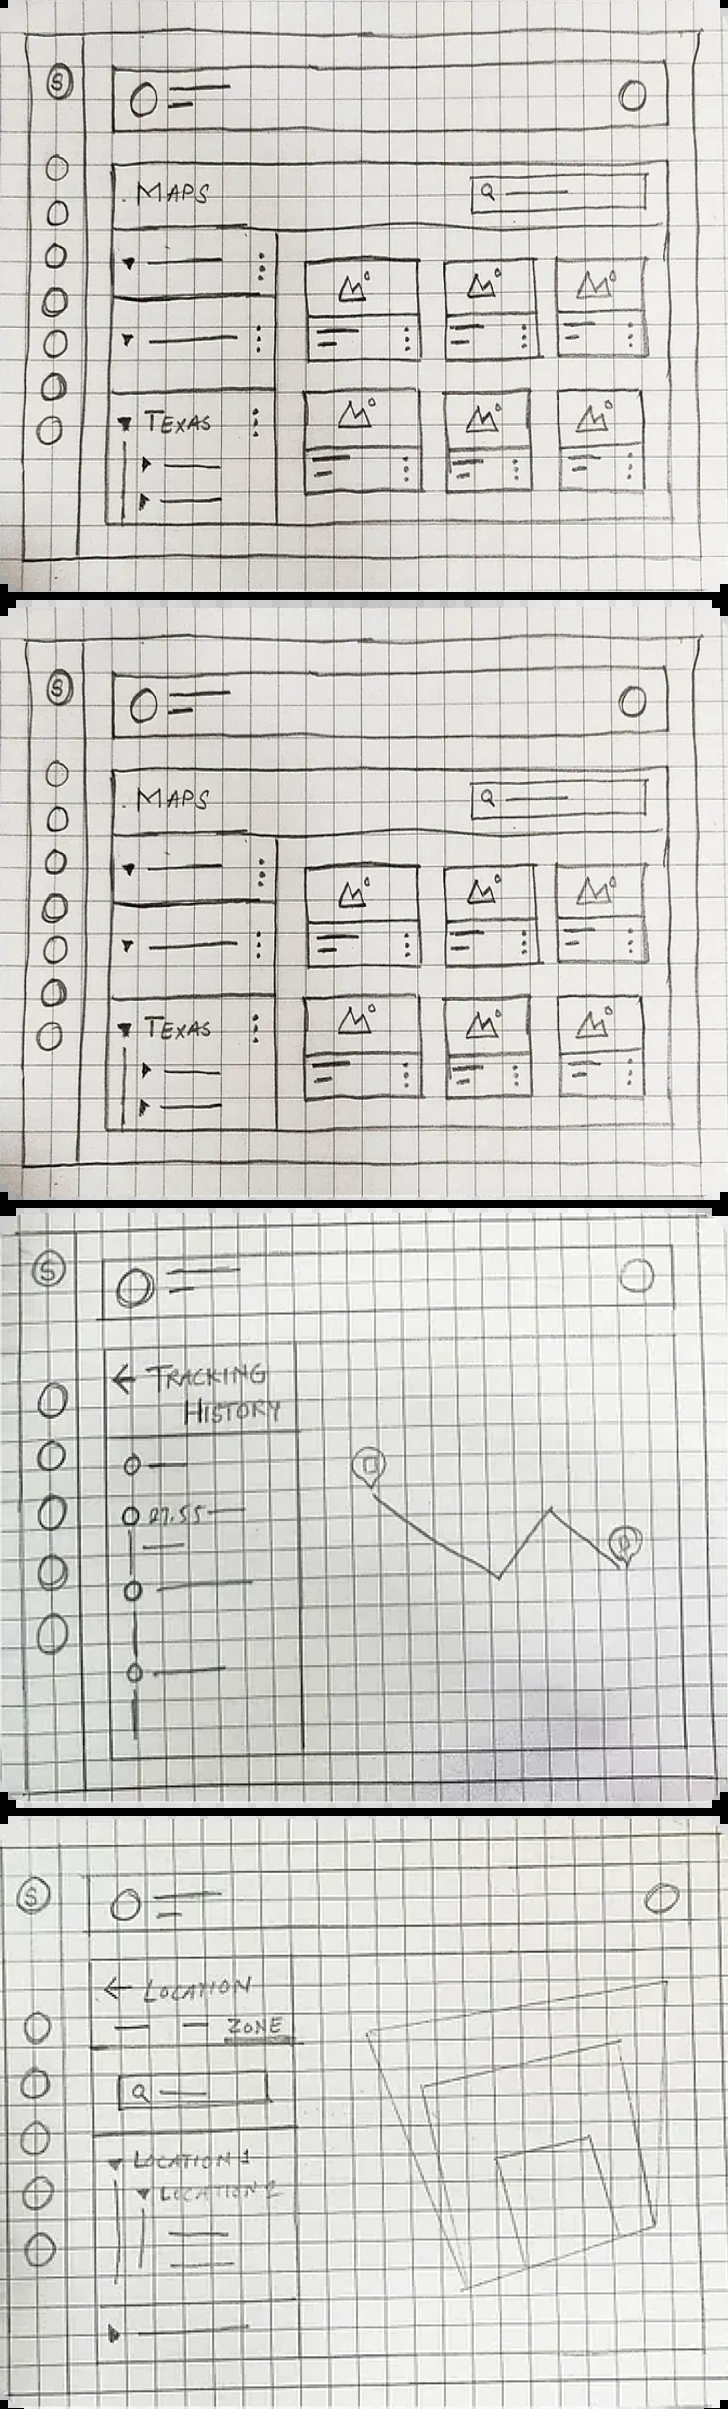 S
MAPS
TEXAS
S
MAPS
TEXAS
S
← TRACKING
HISTORY
27.55
S
← LOCATION
ZONE
LOCATION 1
LOCATION 2